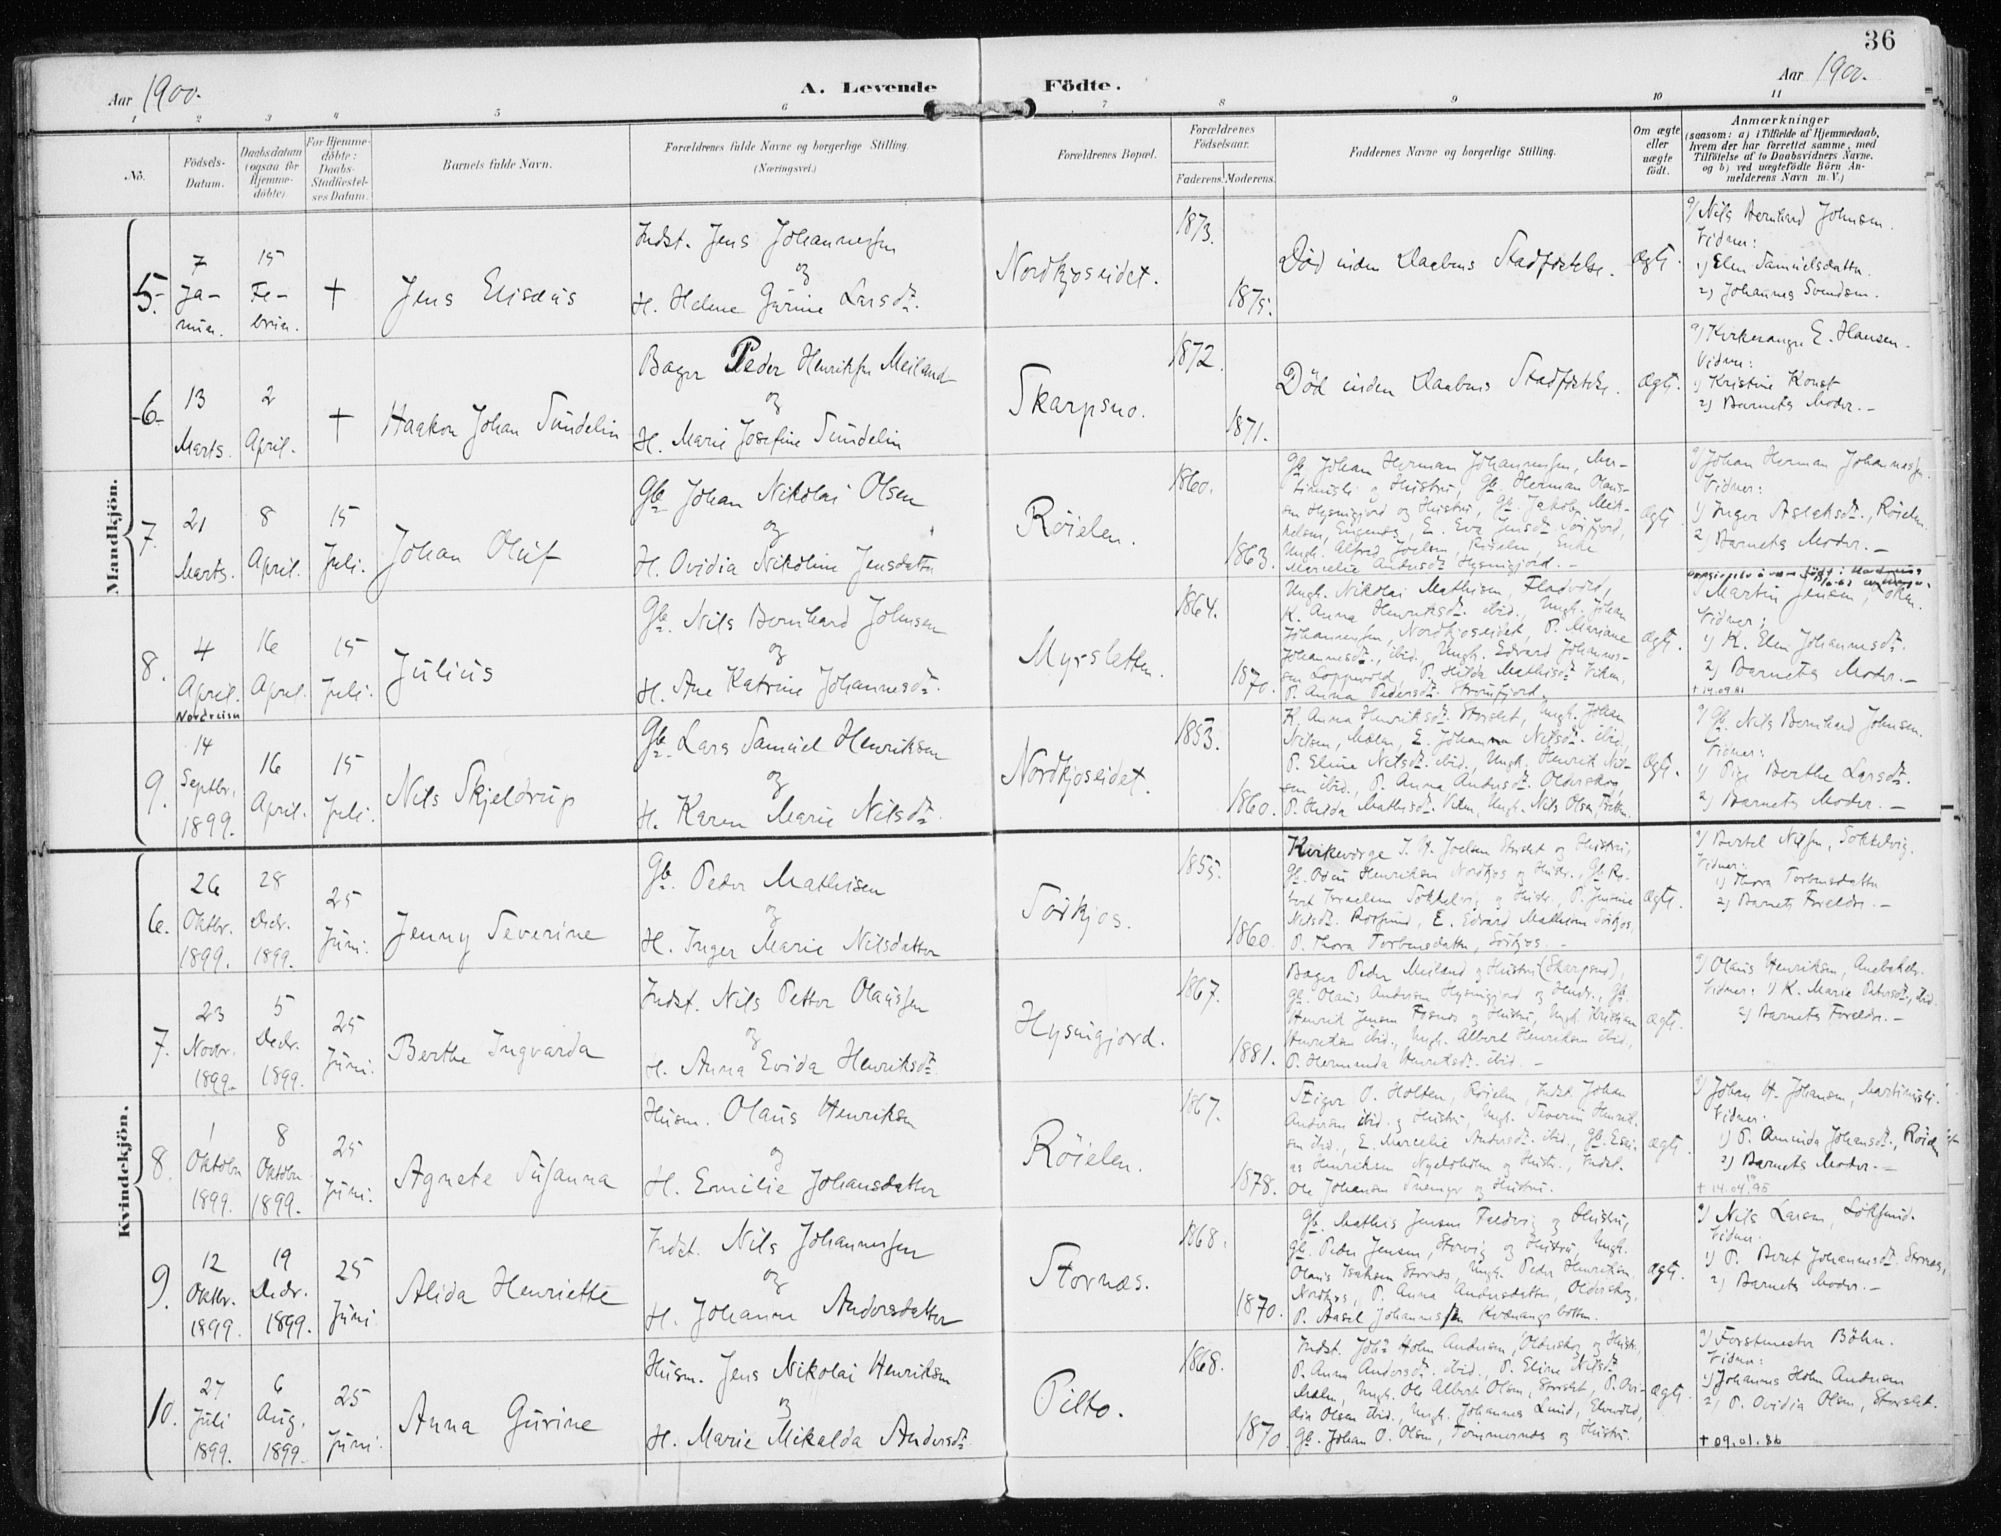 36
Aar 1900.
A. Levende Födte.
Aar 1900.
1 2 3 4 5 6 7 8 9 10 11
No.
Födsels-
Datum.
Daabsdatum
(ogsaa for
Hjemme-
døbte)
For Hjemme-
döbte:
Daabs-
Stadfæstel-
ses Datum.
Barnets fulde Navn.
Forældrenes fulde Navne og borgerlige Stilling.
(Næringsvei.)
Forældrenes Bopæl.
Forældrenes
Födselsaar.
Faderens. Moderens.
Faddernes Navne og borgerlige Stilling.
Om ægte
eller
uægte
födt.
Anmærkninger
(saasom: a) i Tilfælde af Hjemmedaab,
hvem der har forrettet samme, med
Tilföielse af to Daabsvidners Navne.
og b) ved uægtefödte Börn An-
melderens Navn m. V.)
Mandkjön.
5.
7
Ja-
nuar.
15
Fe-
bruar.
+
Jens Elisæus
Indst. Jens Johannessen
og
H. Helene Gurine Larsdr.
Nordkjoseidet.
1873.
1875.
Död inden Daabens Stadfæstelse.
Ægte.
a) Nils Bernhard Johnsen.
Vidner:
1) Elen Samuelsdatter
2) Johannes Svendsen.
6.
13
Marts.
2
April.
+
Haakon Johan Sundelin
Bager Peder Henriksen Meiland
og
H. Marie Josefine Sundelin
Skarpsno.
1872.
1871.
Död inden Daabens Stadfæstelse.
Ægte.
a) Kirkesanger E. Hansen.
Vidner:
1) Kristine Konst
2) Barnets Moder.
7.
21
Marts.
8
April.
15
Juli.
Johan Oluf
Gb. Johan Nikolai Olsen
og
H. Ovidia Nikoline Jensdatter
Röielen.
1860.
1863.
Gb. Johan Herman Johannessen, Mar-
tinusli og Hustru, Gb. Herman Olaus-
sen Hysingjord og Hustru, Gb. Jakob Mik-
kelsen, E. Eva Jensdr. Sörfjord,
Ungk. Alfred Joelsen, Röielen, Enke
Marcelie Andersdr. Hysingjord.
Ægte.
a) Johan Herman Johannessen.
Vidner:
1) Inger Aslaksdr., Röielen.
2) Barnets Moder.
8.
4
April.
Nordreisa
16
April.
15
Juli.
Julius
Gb. Nils Bernhard Johnsen
og
H. Ane Katrine Johannesdr.
Myrsletten.
1864.
1870.
Ungk. Nikolai Mathisen, Fladvold,
K. Anna Henriksdr. ibid., Ungk. Johan
Johannessen, Nordkjoseidet, P. Mariane
Johannesdr., ibid., Ungk. Edvard Johannes-
sen Loppevold, P. Hilda Mathisdr. Viken,
P. Anna Pedersdr. Strömfjord.
Ægte.
Martin Jensen,
Vidner:
1) K. Elen Johannesdr.
2) Barnets Moder.
+ 14.09.81
9.
14
Septbr.
1899.
16
April.
15
Juli.
Nils Skjeldrup
Gb. Lars Samuel Henriksen
og
H. Karen Marie Nilsdr.
Nordkjoseidet.
1853.
1860.
K. Anna Henriksdr. Storslet, Ungk. Johan
Nilsen, Mælen, E. Johanna Nilsdr. ibid,
P. Eline Nilsdr. ibid., Ungk. Henrik Nil-
sen ibid., P. Anna Andersdr. Olderskog,
P. Hilda Mathisdr. Viken, Ungk. Nils Olsen,
Ægte.
a) Gb. Nils Bernhard Johnsen.
Vidner:
1) Pige Berthe Larsdr.
2) Barnets Moder.
Kvindekjön.
6.
26
Oktbr.
1899.
28
Decbr.
1899.
25
Juni.
Jenny Severine
Gb. Peder Mathisen
og
H. Inger Marie Nilsdatter
Sörkjos.
1855.
1860.
Kirkeværge J. H. Joelsen Storslet og Hustru,
Gb. Henriksen Nordkjos og Hustr., Gb. Ro-
bert Israelsen Sokkelvig og Hustr., P. Jensine
Nilsdr. Rotsund, E. Edvard Mathisen Sörkjos,
P. Thora Torbensdatter, Sörkjos.
Ægte.
a) Bertel Nilsen, Sokkelvig.
Vidner:
1) Thora Torbensdatter
2) Barnets Forældre.
7.
23
Novbr.
1899.
5
Decbr.
1899.
25
Juni.
Berthe Ingvarda
Indst. Nils Petter Olaussen
og
H. Anna Evida Henriksdr.
Hysingjord.
1867.
1881.
Bager Peder Meiland og Hustru (Skarpsno),
Gb. Olaus Andersen Hysingjord og Hustr., Gb.
Henrik Jensen Fosnes og Hustru, Ungk. Kristian
Henriksen ibid., Ungk. Albert Henriksen ibid.,
P. Hermanda Henriksdr. ibid.
Ægte.
a) Olaus Henriksen,
Vidner: 1) K. Marie Petersdr., ibid.
2) Barnets Forældre.
8.
1
Oktober
1899.
8
Oktober
1899.
25
Juni.
Agnete Susanna
Husm. Olaus Henriksen
og
H. Emilie Johansdatter
Röielen.
1867.
1878.
Steiger O. Holten, Röielen, Indst. Johan
Andersen ibid. og Hustru, Ungk. Severin Henrik-
sen ibid., E. Marcelie Andersdr. ibid., Gb. Esai-
as Henriksen Nyelvholm og Hustr., Indst.
Ole Johansen Snemyr og Hustru.
Ægte.
a) Johan H. Johansen, Martinusli.
Vidner:
1) P. Aminda Johansdr., Röielen
2) Barnets Moder.
9.
12
Oktbr.
1899.
19
Decbr.
1899.
25
Juni
Alida Henriette
Indst. Nils Johannessen
og
H. Johanna Andersdatter
Stornæs.
1868.
1870.
Gb. Mathis Jensen og Hustru,
Gb. Peder Jensen, Storvig og Hustru, Ungk.
Olaus Isaksen Stornæs, Ungk. Peder Henriksen,
Nordkjos, P. Anna Andersdatter, Olderskog,
P. Aasel Johannessen Kvænangsbotten.
Ægte.
a) Nils Larsen,
Vidner:
1) P. Beret Johannesdr. Stornæs,
2) Barnets Moder.
10.
27
Juli
1899.
6
Aug.
1899.
25
Juni.
Anna Gurine
Husm. Jens Nikolai Henriksen
og
H. Marie Mikalda Andersdr.
Pilto.
1868.
1870.
Indst. Johs Holm Andersen, Olderskog og Hustr.,
P. Anna Andersdr. ibid., P. Eline Nilsdr.
Mælen, Ungk. Ole Albert Olsen, Storslet, P. Ovi-
dia Olsen ibid., Ungk. Johannes Lund, Elvevold,
Gb. Johan O. Olsen, Tömmernes og Hustru.
Ægte.
a) Forstmester Böhn.
Vidner:
1) Johannes Holm Andersen
2) P. Ovidia Olsen, Storslet.
+ 09.01.86